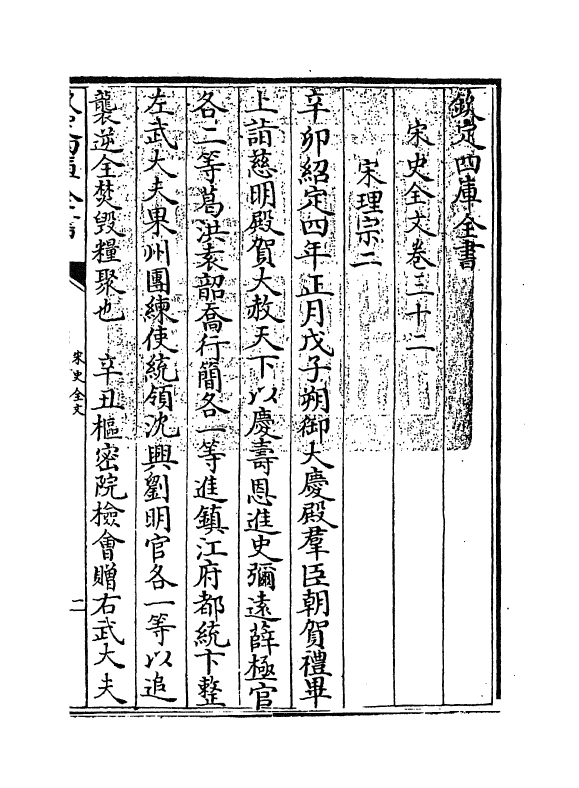 欽定四庫全書
宋史全文卷三十二
宋理宗二
辛卯紹定四年正月戊子朔御大慶殿羣臣朝賀禮畢
上詣慈明殿賀大赦天下以慶壽恩進史彌遠薛極官
各二等葛洪袁韶喬行簡各一等進鎮江府都統卞整
左武大夫果州團練使統領沈興劉明官各一等以追
襲逆全焚毀糧聚也 辛丑樞密院檢會贈右武大夫
宋史全文